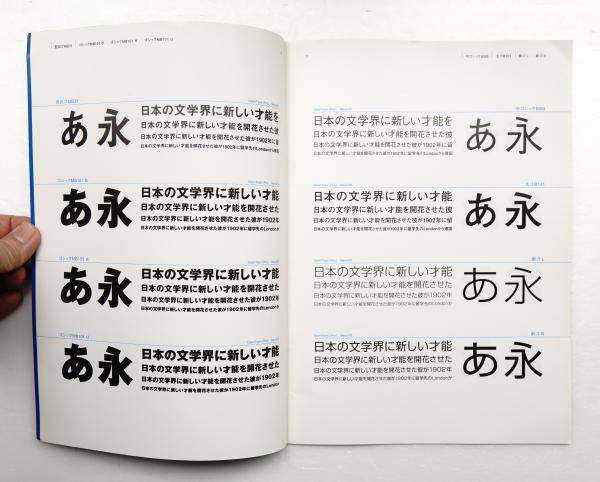 見出ゴMB31 ゴシックMB101 B ゴシックMB101 H ゴシックMB101 U
見出ゴMB31
あ永
日本の文学界に新しい才能を
日本の文学界に新しい才能を開花させた彼
日本の文学界に新しい才能を開花させた彼が1902年に留
日本の文学界に新しい才能を開花させた彼が1902年に留学先のLondonから帰国
ゴシックMB101 B
あ永
日本の文学界に新しい才能
日本の文学界に新しい才能を開花させた
日本の文学界に新しい才能を開花させた彼が1902年
日本の文学界に新しい才能を開花させた彼が1902年に留学先のLondonか
ゴシックMB101 H
あ永
日本の文学界に新しい才能
日本の文学界に新しい才能を開花させた
日本の文学界に新しい才能を開花させた彼が1902年
日本の文学界に新しい才能を開花させた彼が1902年に留学先のLondonか
ゴシックMB101 U
あ永
日本の文学界に新しい才能
日本の文学界に新しい才能を開花させた
日本の文学界に新しい才能を開花させた彼が1902年
日本の文学界に新しい才能を開花させた彼が1902年に留学先のLondonか
中ゴシックBBB 太ゴB101 新ゴ L 新ゴ R
中ゴシックBBB
日本の文学界に新しい才能を
日本の文学界に新しい才能を開花させた彼
日本の文学界に新しい才能を開花させた彼が1902年に留
日本の文学界に新しい才能を開花させた彼が1902年に留学先のLondonから帰国
あ永
太ゴB101
日本の文学界に新しい才能を
日本の文学界に新しい才能を開花させた彼
日本の文学界に新しい才能を開花させた彼が1902年に留
日本の文学界に新しい才能を開花させた彼が1902年に留学先のLondonから帰国
あ永
新ゴ L
日本の文学界に新しい才能
日本の文学界に新しい才能を開花させた
日本の文学界に新しい才能を開花させた彼が1902年
日本の文学界に新しい才能を開花させた彼が1902年に留学先のLondonか
あ永
新ゴ R
日本の文学界に新しい才能
日本の文学界に新しい才能を開花させた
日本の文学界に新しい才能を開花させた彼が1902年
日本の文学界に新しい才能を開花させた彼が1902年に留学先のLondonか
あ永